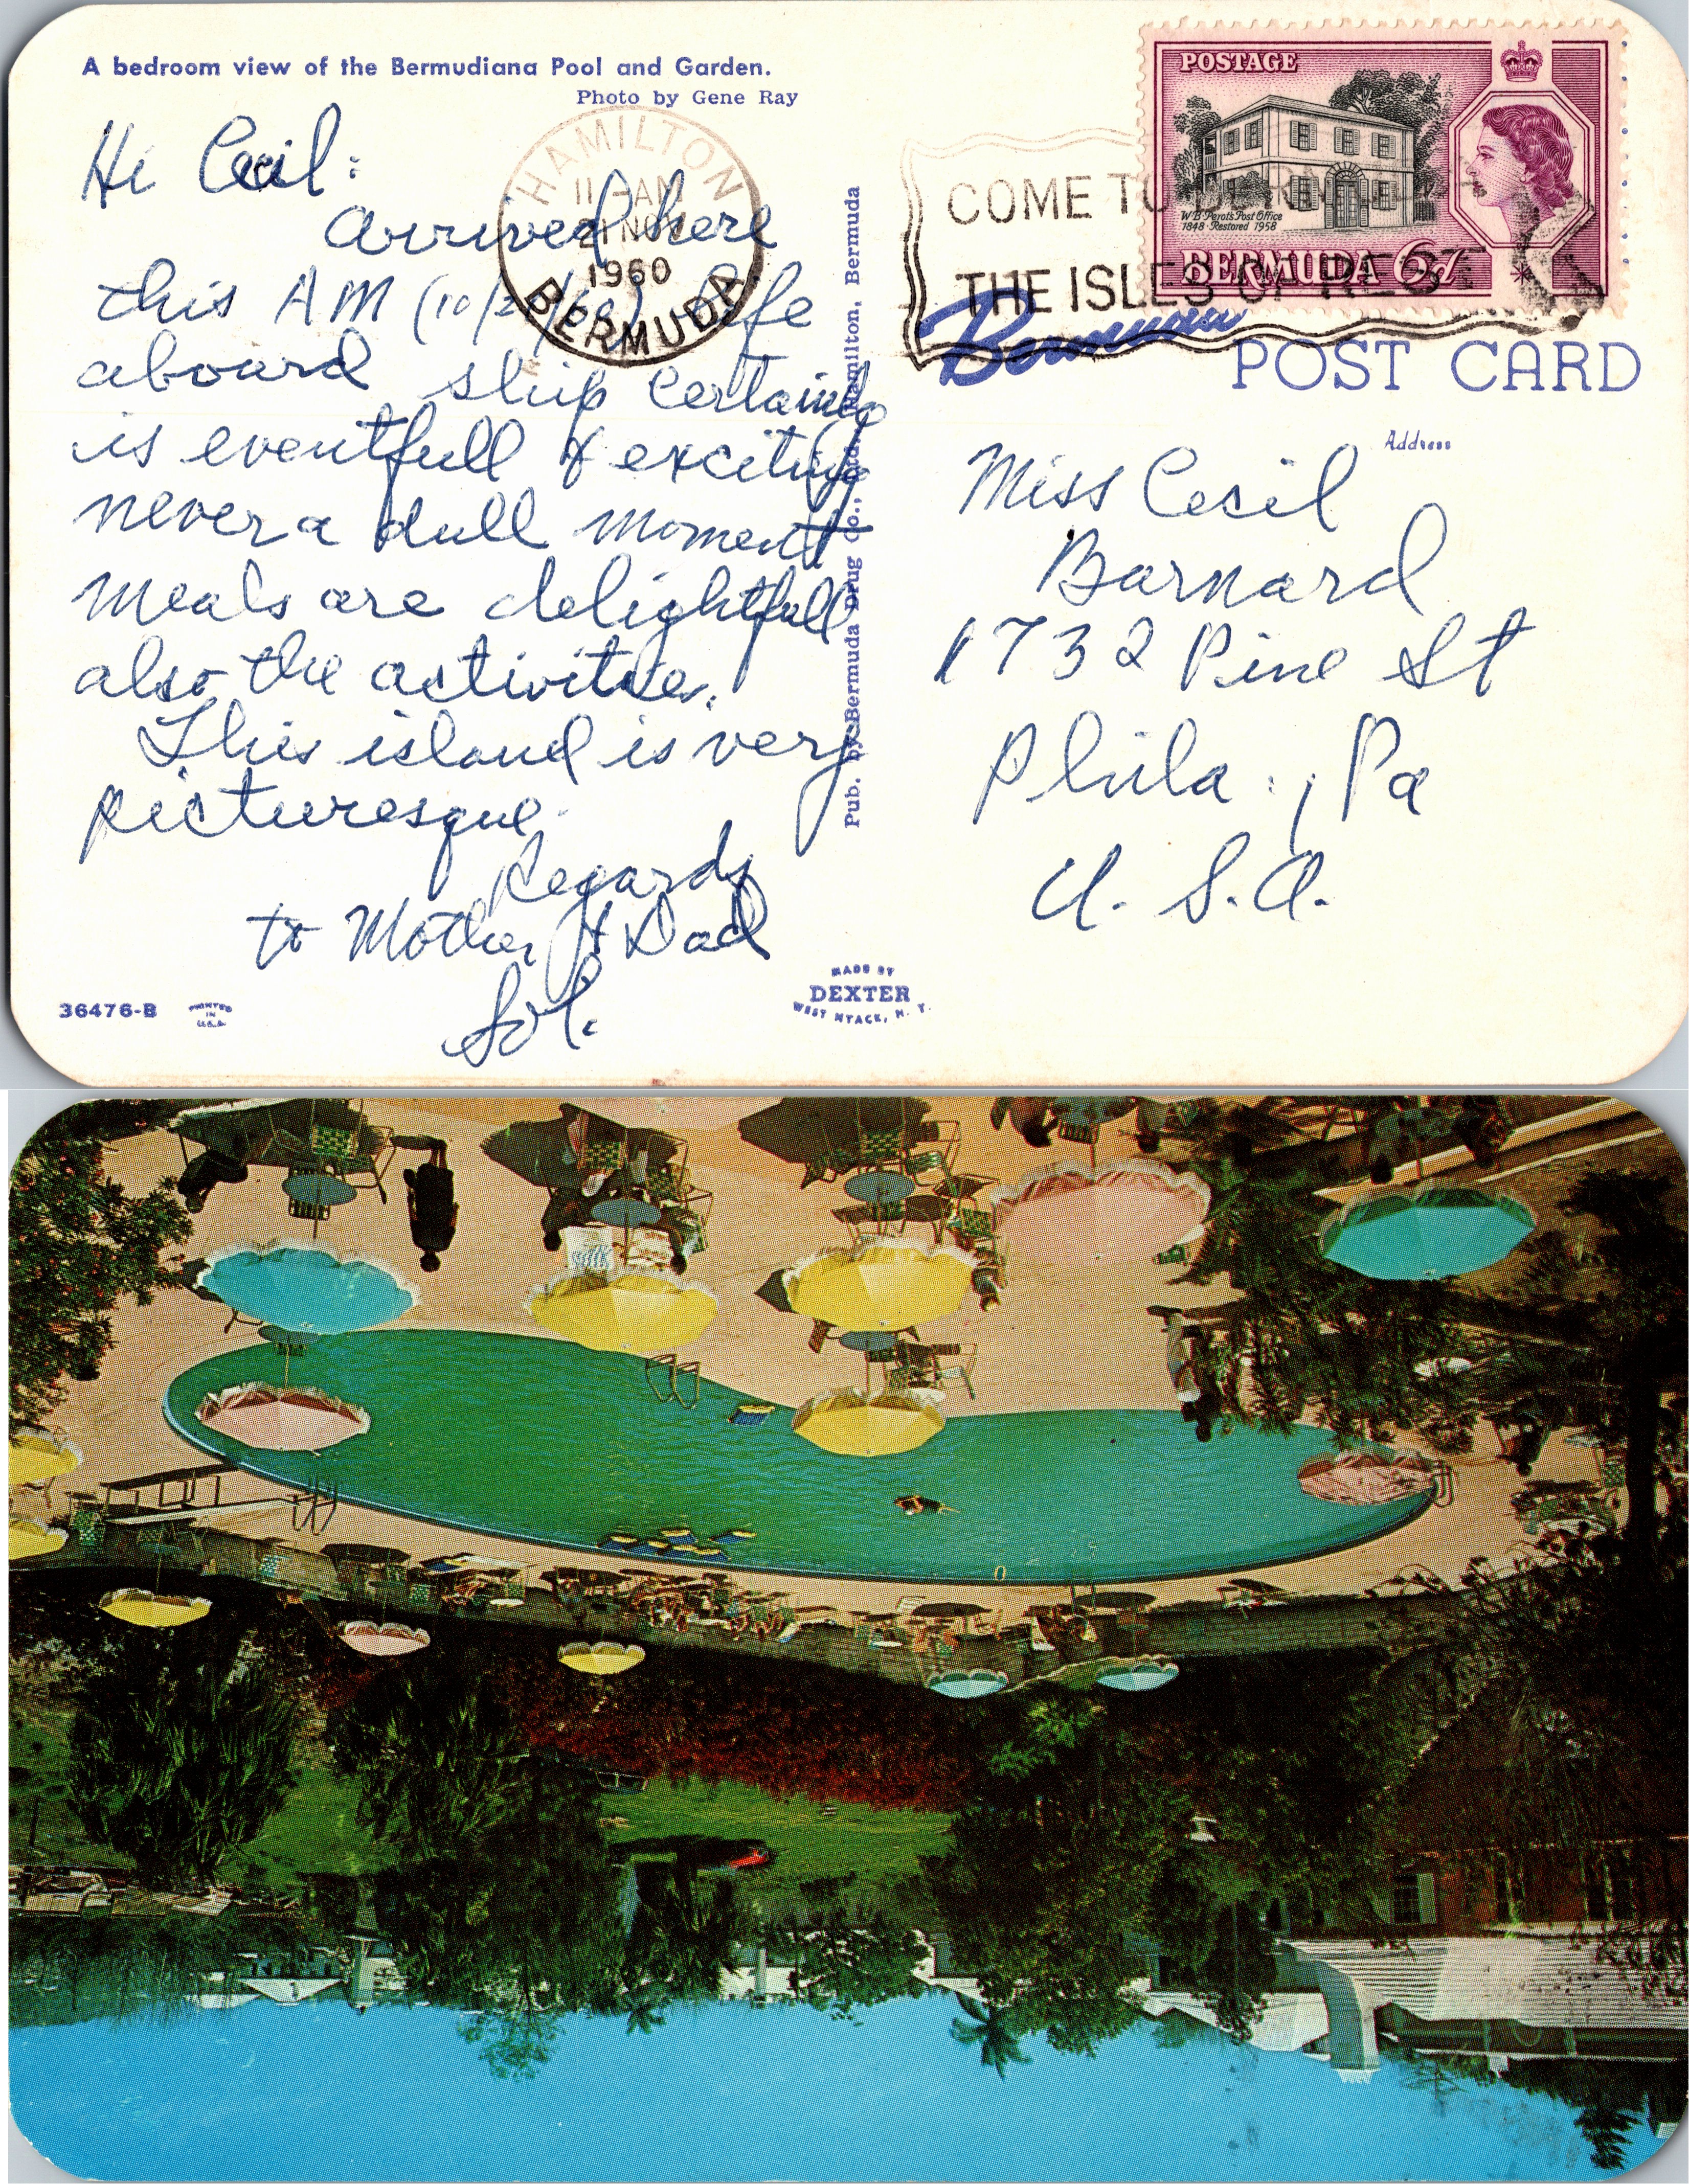 A bedroom view of the Bermudiana Pool and Garden.
Photo by Gene Ray
Hi Cecil:
Arrived here
this AM (10/2 /60) Life
aboard ship certainly
is eventfull & exciting
never a dull moment
meals are delightfull
also the activities.
This island is very
picturesque.
Regards
to Mother & Dad
Sol.
36476-B
PRINTED
IN
U.S.A.
MADE BY
DEXTER
WEST NYACK, N. Y.
Pub. by Bermuda Drug Co., Ltd., Hamilton, Bermuda
HAMILTON
11 - AM
21 NOV
1960
BERMUDA
COME TO BERMUDA
THE ISLES OF REST
POSTAGE
W.B. Perot's Post Office
1848 · Restored 1958
BERMUDA 6d
Bermuda
POST CARD
Address
Miss Cecil
Barnard
1732 Pine St
Phila., Pa
U. S. A.